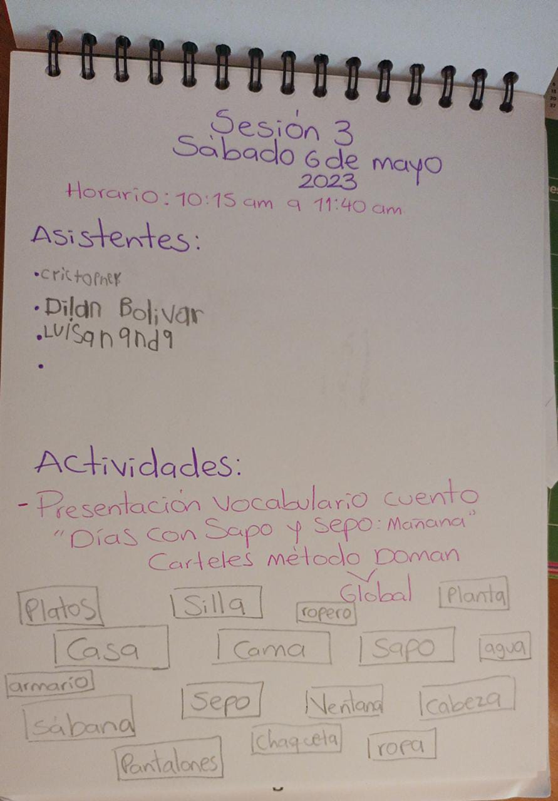 Sesión 3
Sábado 6 de mayo
2023
Horario: 10:15 am a 11:40 am
Asistentes:
•crictopher
•Dilan Bolivar
•Luisananda
•
Actividades:
- Presentación vocabulario cuento
"Días con Sapo y Sepo: Mañana"
Carteles método Doman
Global
Platos Silla ropero Planta
Casa Cama Sapo agua
armario Sepo Ventana Cabeza
Sábana Chaqueta ropa
Pantalones